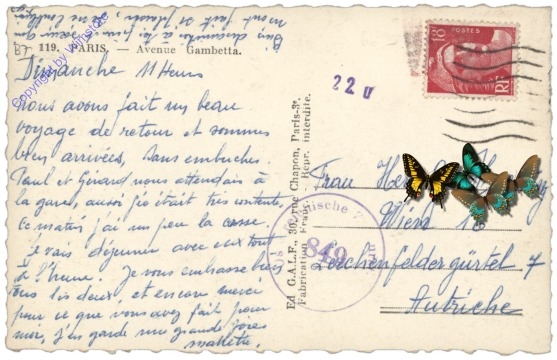 B7 119. PARIS. — Avenue Gambetta.
Dimanche 11 Heures
Nous avons fait un beau
voyage de retour et sommes
bien arrivées, sans embuches.
Paul et Gérard nous attendais à
la gare, aussi j'ai était très contente,
ce matin j'ai un peu la casse.
Je vais déjeuner avec eux tout
à l'heure. Je vous embrasse bien
tous les deux, et encore merci
pour ce que vous avez fait pour
moi, j'en garde une grande joie
Copyright by Winsider
Ed. G.A.L.F., 30, rue Chapon, Paris-3e.
Fabrication Franç. Repr. interdite.
22 U
18F
POSTES
RF
849
Frau
Wien
Lerchenfeldergürtel 7
Autriche